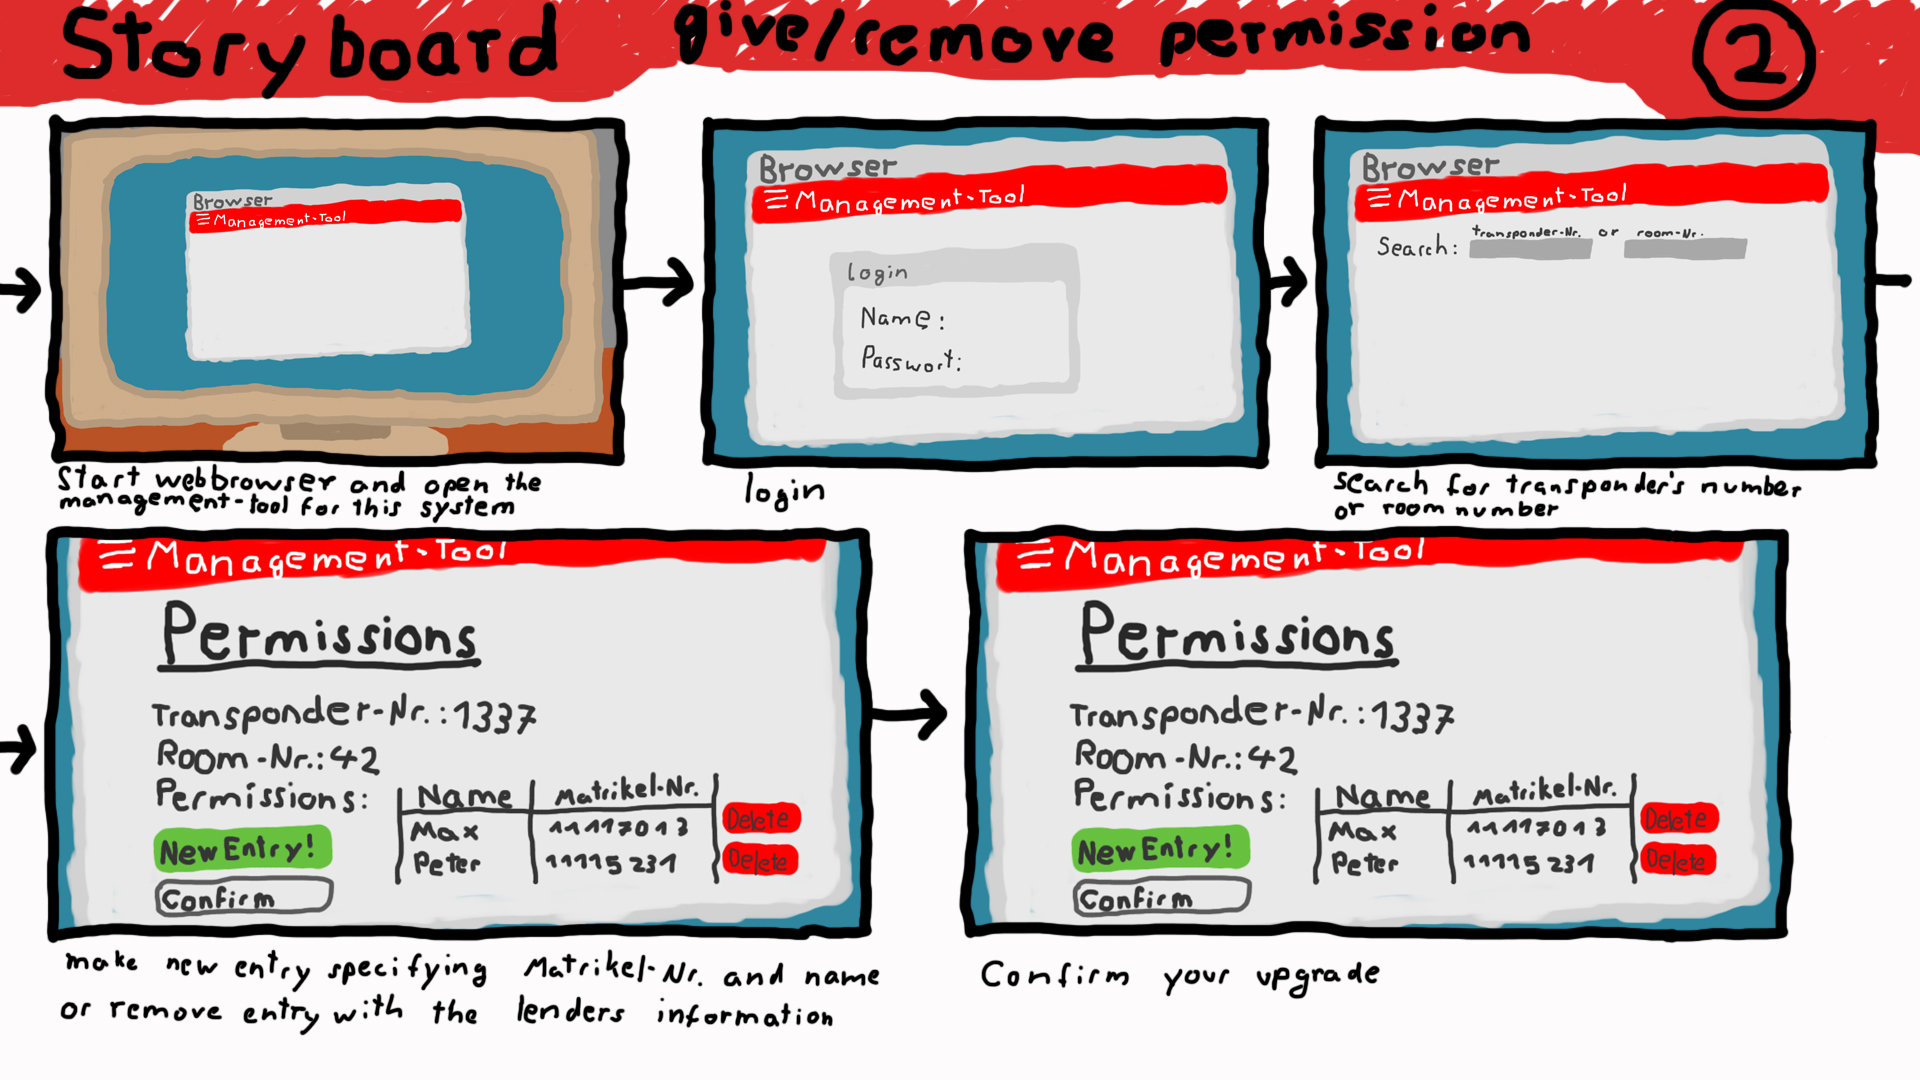 Storyboard give/remove permission 2
Browser
Management-Tool
Start webbrowser and open the
management-tool for this system
Browser
Management-Tool
login
Name:
Passwort:
login
Browser
Management-Tool
transponder-Nr. or room-Nr.
Search:
search for transponder's number
or room number
Management-Tool
Permissions
Transponder-Nr.:1337
Room-Nr.:42
Permissions:
Name Matrikel-Nr.
Max 11117013 Delete
Peter 11115231 Delete
New Entry!
Confirm
make new entry specifying Matrikel-Nr. and name
or remove entry with the lenders information
Management-Tool
Permissions
Transponder-Nr.:1337
Room-Nr.:42
Permissions:
Name Matrikel-Nr.
Max 11117013 Delete
Peter 11115231 Delete
New Entry!
Confirm
Confirm your upgrade